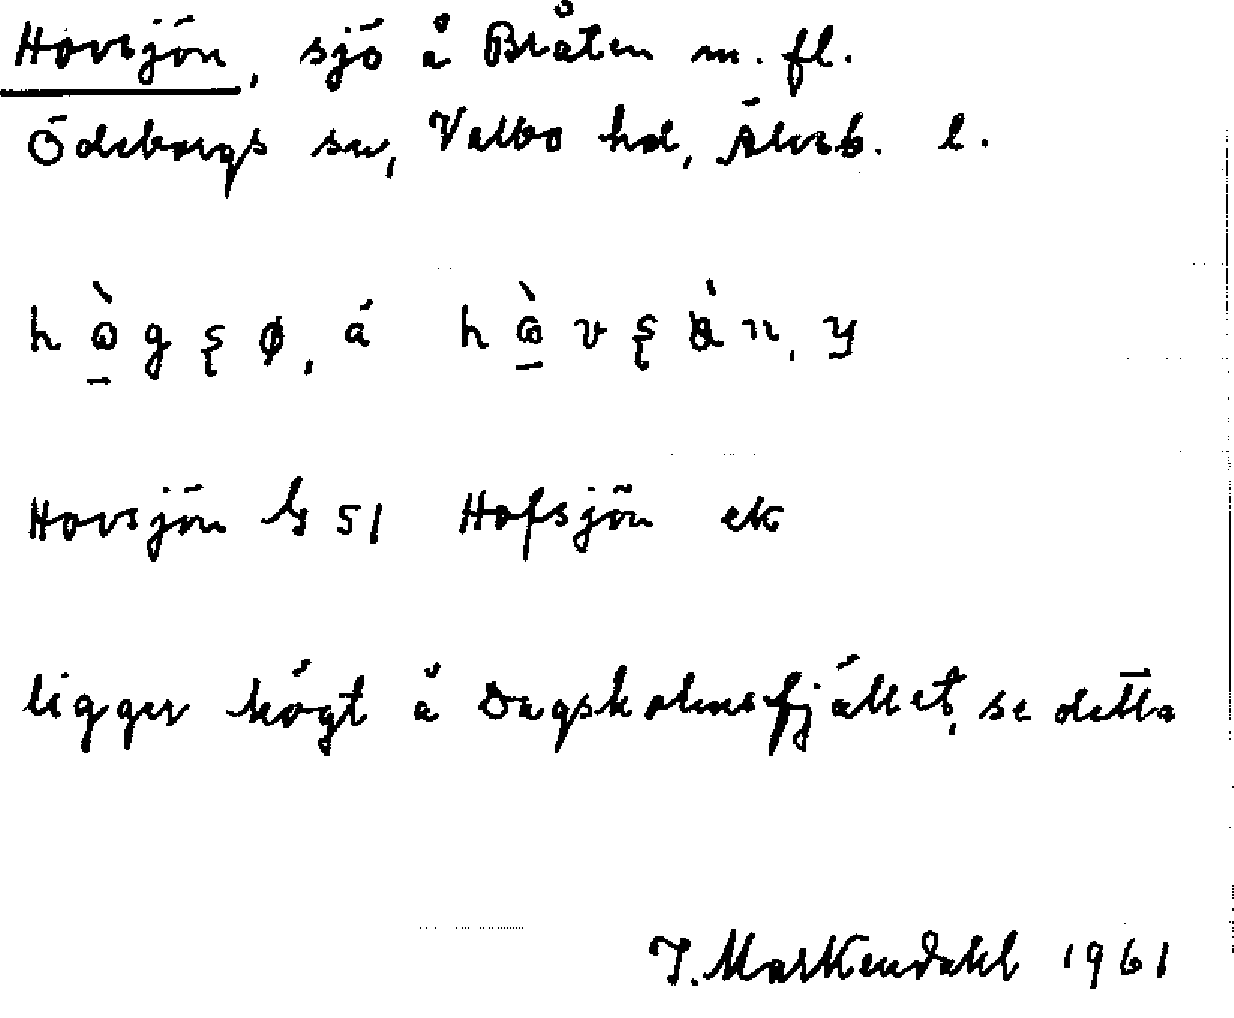 Hovsjön, sjö å Bråten m. fl.
Ödeborgs sn, Valbo hd, Älvsb. l.
Hovsjön G 51 Hofsjön ek
ligger högt å Dagskolensfjället, se detta
J. Markendahl 1961